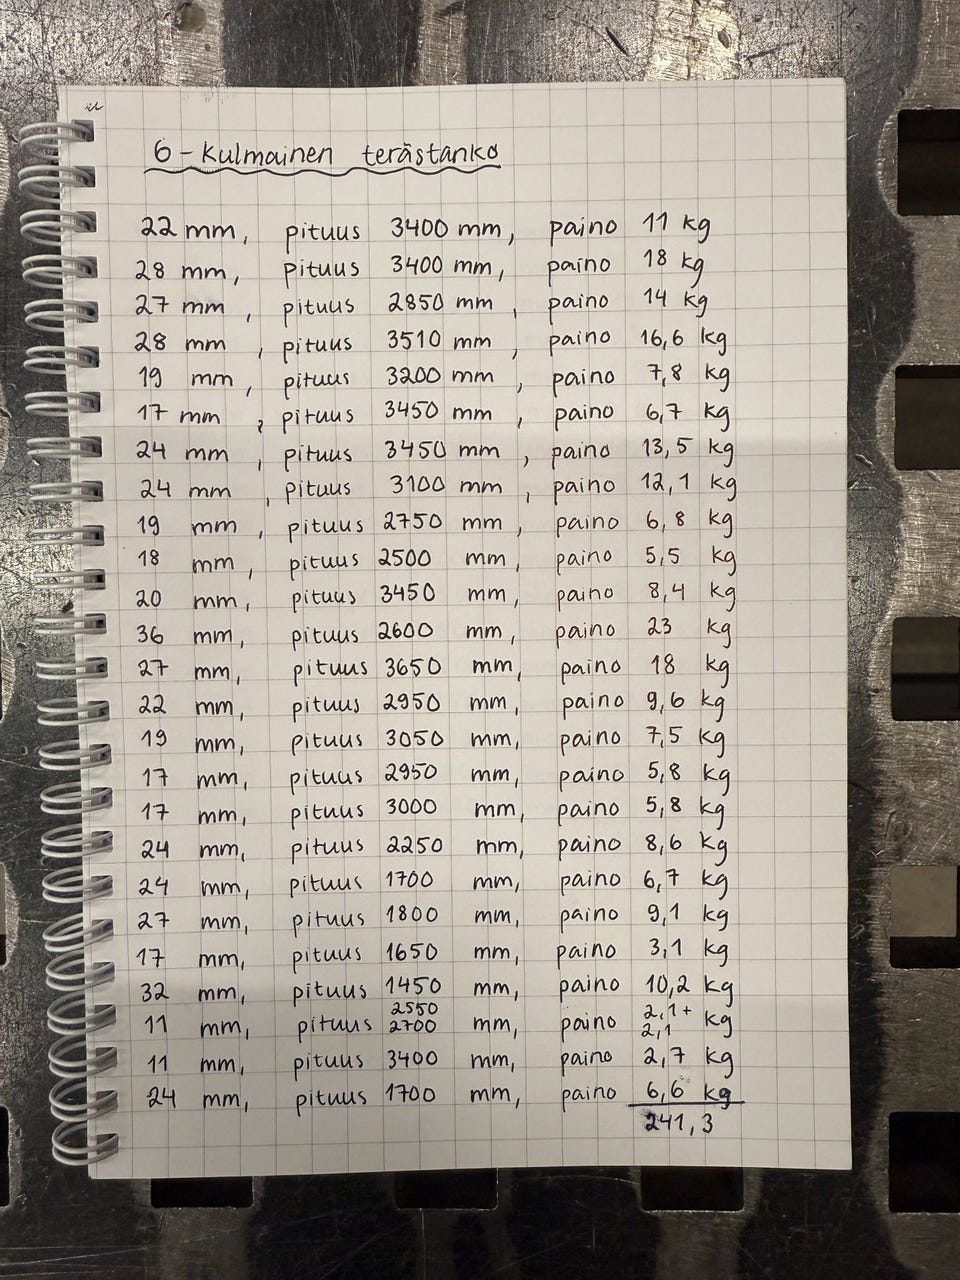 6-kulmainen terästanko
22 mm, pituus 3400 mm, paino 11 kg
28 mm, pituus 3400 mm, paino 18 kg
27 mm, pituus 2850 mm, paino 14 kg
28 mm, pituus 3510 mm, paino 16,6 kg
19 mm, pituus 3200 mm, paino 7,8 kg
17 mm, pituus 3450 mm, paino 6,7 kg
24 mm, pituus 3450 mm, paino 13,5 kg
24 mm, pituus 3100 mm, paino 12,1 kg
19 mm, pituus 2750 mm, paino 6,8 kg
18 mm, pituus 2500 mm, paino 5,5 kg
20 mm, pituus 3450 mm, paino 8,4 kg
36 mm, pituus 2600 mm, paino 23 kg
27 mm, pituus 3650 mm, paino 18 kg
22 mm, pituus 2950 mm, paino 9,6 kg
19 mm, pituus 3050 mm, paino 7,5 kg
17 mm, pituus 2950 mm, paino 5,8 kg
17 mm, pituus 3000 mm, paino 5,8 kg
24 mm, pituus 2250 mm, paino 8,6 kg
24 mm, pituus 1700 mm, paino 6,7 kg
27 mm, pituus 1800 mm, paino 9,1 kg
17 mm, pituus 1650 mm, paino 3,1 kg
32 mm, pituus 1450 mm, paino 10,2 kg
2550 2,1+
11 mm, pituus 2700 mm, paino 2,1 kg
11 mm, pituus 3400 mm, paino 2,7 kg
24 mm, pituus 1700 mm, paino 6,6 kg
241,3